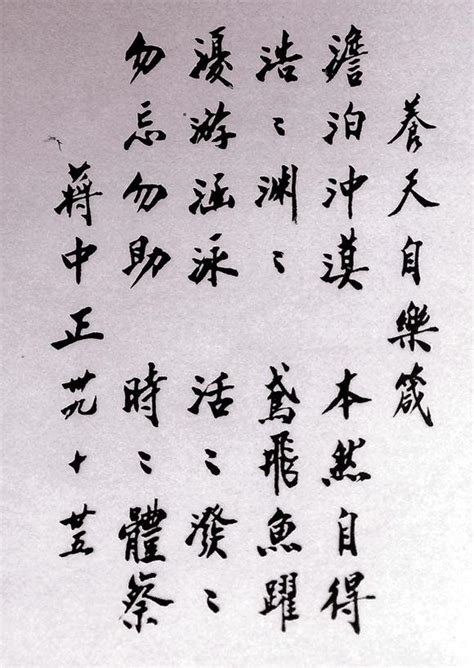 養天自樂箴
澹泊沖漠 本然自得
浩〻渊〻 鳶飛魚躍
優游涵泳 活〻潑〻
勿忘勿助 時〻體察
蔣中正 卅九 十 廿五